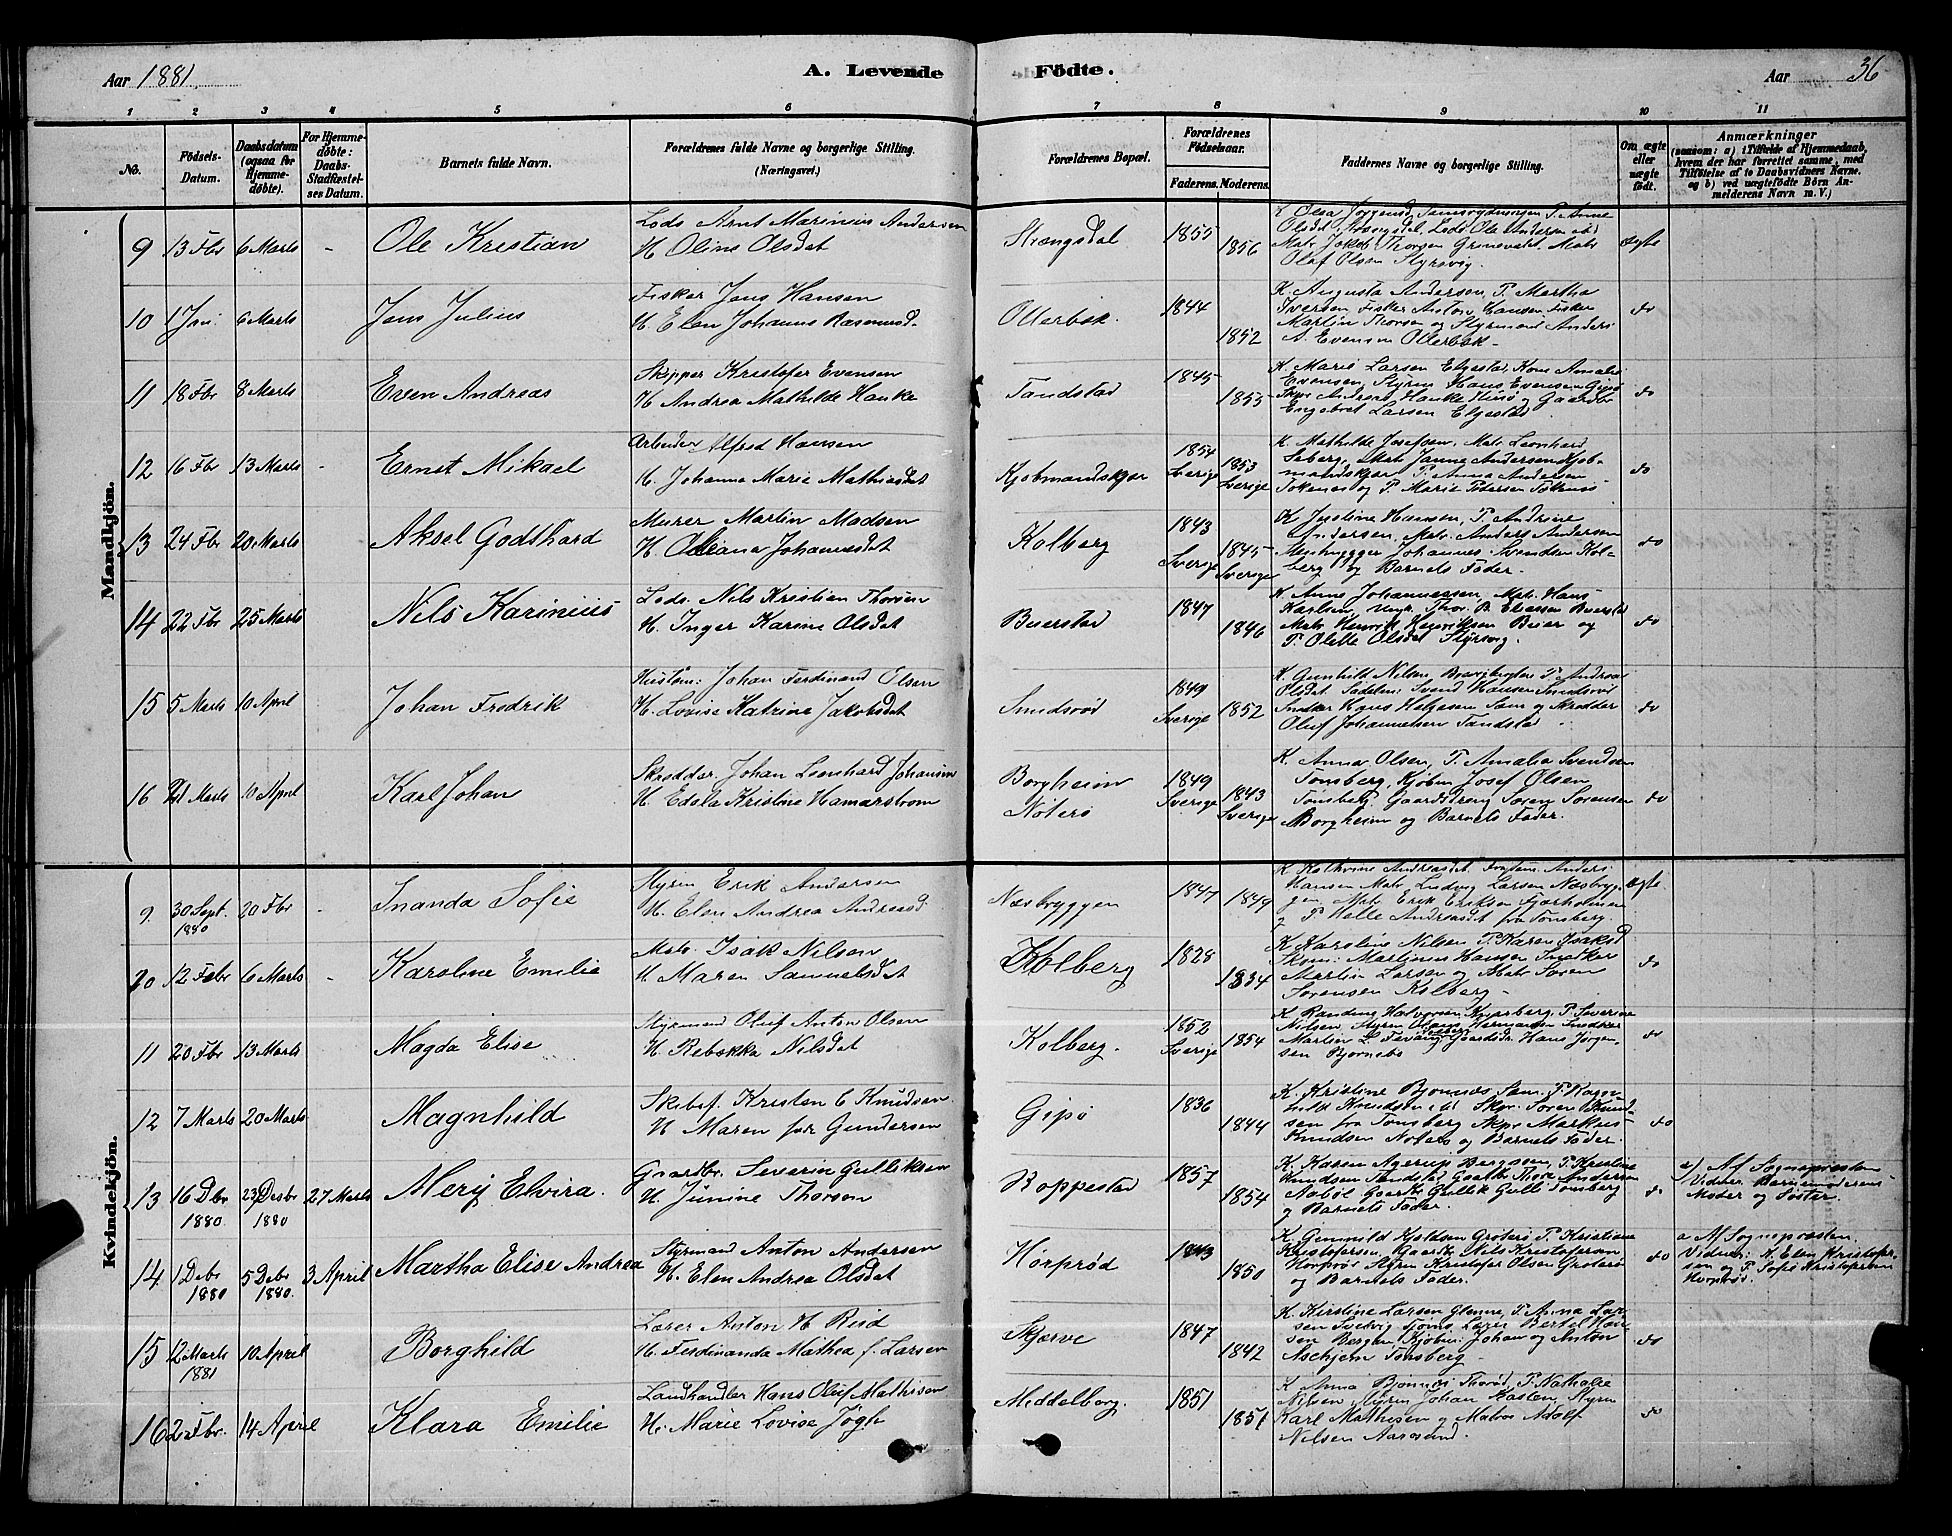 Aar 1881
A. Levende Födte.
Aar 36
1 2 3 4 5 6 7 8 9 10 11
No.
Födsels-Datum.
Daabsdatum (ogsaa for Hjemme-döbte).
For Hjemme-döbte: Daabs-Stadfæstel-ses Datum.
Barnets fulde Navn.
Forældrenes fulde Navne og borgerlige Stilling. (Næringsvei.)
Forældrenes Bopæl.
Forældrenes Födselsaar.
Faderens. Moderens.
Faddernes Navne og borgerlige Stilling.
Om ægte eller uægte født.
Anmærkninger
(saasom: a) i Tilfælde af Hjemmedaab, hvem der har forrettet samme, med Tilföielse af to Daabsvidners Navne. og b) ved uægtefödte Börn An-melderens Navn m. V.)
Mandkjön.
9 13 Fbr 6 Marts - Ole Kristian
Lods Arnt Marinius Andersen
H. Oline Olsdat
Strængsdal 1855 1856
Olsdat Strængsdal, Lods Ole Andersen
Matr Jakob Thorsen Grimsvedt, Matr
Olaf Olsen Styrsvig.
ægte
10 1 Jan. 6 Marts Jens Julius
Fisker Jens Hansen
H. Elen Johanne Rasmusd.
Ollerbok. 1844 1852
K. Augusta Andersen, P. Martha
Iversen Fisker Anton Hansen Fisker
Martin Thorsen og Styrmand Anders
A. Evensen Ollerbok
do
11 18 Fbr 8 Marts Even Andreas
Skipper Kristofer Evensen
H. Andrea Mathilde Hanke
Tandstad 1845 1853
K. Marie Larsen Elgestad, Kone Amalie
Evensen, Styrm Hans Evensen Gipø
Skpr Andreas Hanke Husø og Gaardbr
Engebret Larsen Elgestad
do
12 16 Fbr 13 Marts - Ernst Mikael
Arbeider Alfred Hansen
H. Johanne Marie Mathiasdat
Kjøbmandskjær 1854 Sverige 1853 Sverige
K. Mathilde Josefsen, Matr. Leonhard
Seberg, Matr Janne Andersen Kjøb-
mandskjær P. Anna Andersen
Tokenes og P. Marie Pedersen Tokenes
do
13 24 Fbr 20 Marts Aksel Godthard
Murer Martin Madsen
H. Oleana Johannesdat
Kolberg 1843 Sverige 1845 Sverige
K. Justine Hansen, P. Andrine
Andersen, Matr. Anders Andersen
Johannes Svendsen Kol-
berg og Barnets Fader.
do
14 22 Fbr 25 Marts Nils Karinius
Lods. Nils Kristian Thorsen
H. Inger Karine Olsdat
Buerstad 1847 1846
K. Anne Johannessen, Matr. Hans
Karlsen, Ungk. Thor B. Eliassen Buerstad
Matr Henrik Henriksen Beier og
P. Olette Olsdat Styrsvig.
do
15 5 Marts 10 April Johan Fredrik
Hustom: Johan Ferdinand Olsen
H. Lovise Katrine Jakobsdat
Smidsrød 1849 Sverige 1852
K. Gunhild Nilsen, P. Andrea
Olsdat Svend Hansen Smidsrød
Snedker Hans Helgesen Sem og Skrædder
Oluf Johannessen Tandstad
do
16 21 Marts 10 April Karl Johan
Skrædder. Johan Leonhard Johansen
H. Edela Kristine Hamarstrom
Borgheim Nøterø 1849 Sverige 1843 Sverige
K. Anna Olsen, P. Amalia Svendsen
Tønsberg, Kjøbm Josef Olsen
Tønsberg, Gaardsdreng Søren Sørensen
Borgheim og Barnets Fader.
do
Kvindekjön.
9 30 Sept. 1880 20 Fbr - Inanda Sofie
Styrm Erik Andersen
H. Elen Andrea Andreasd.
Næsbryggen 1847 1849
K. Kathrine Andreasdat Anders
Hansen Matr Ludvig Larsen Næsbryg-
gen, Matr. Erik Eriksen Fjærholmen
og P. Helle Andreasdat fra Tønsberg.
ægte
10 12 Febr 6 Marts - Karoline Emilie
Matr. Isak Nilsen
H Maren Samuelsdat
Kolberg 1828 1834
K Karoline Nilsen P. Karen Isaksd
Martinus Hansen Snedker
Martin Larsen og Matr Søren
Sørensen Kolberg
do
11 20 Fbr 13 Marts Magda Elise
Styrmand Oluf Anton Olsen
H. Rebekka Nilsdat
Kolberg. 1852 Sverige 1854
K. Randine Halvorsen P. Severine
Nilsen, Styrm Hermansen Snedker
Martin L. Gaardbr. Hans Jørgen-
sen Bjørnebo
do
12 7 Marts 20 Marts Magnhild
Skibsf. Kristen C Knudsen
H Maren født Gundersen
Gipø 1836 1844
K. Kristine Bjønnes Sem, P. Ragn-
hild Knudsen, Skpr. Søren Knud-
sen fra Tønsberg Skpr Markus
Knudsen Nøterø og Barnets Fader.
do
13 16 Dbr 1880 23 Desbr 1880 27 Marts Merij Elvira.
Gaardbr. Severin Gulliksen
H Junine Thorsen
Roppestad 1857 1854
K. Karen Agerup Bergsen, P. Kristine
Knudsen Tandstad, Gaardbr Thore Andersen
Nabøl Gaardbr Gullik Gulli Tønsberg
og Barnets Fader.
do
a) Af Sognepresten
Vidner. Barnemoderens
Moder og Søster.
14 1 Debr 1880 5 Debr 1880. 3 April Martha Elise Andrea
Styrmand Anton Andersen
H. Elen Andrea Olsdat
Hørprød 1843 1850
K. Gunnild Kjeldsen Groterø P. Kristiane
Kristofersen, Gaardb Nils Kristofersen
Hørprød Styrm Kristofer Olsen Groterø
og Barnets Fader.
do
a Af Sognepræsten.
Vidner: K. Elen Kristofer-
sen og P. Sofie Kristofersen
Hørprød.
15 12 Marts 1881 10 April Borghild
Lærer Anton H Riis
H. Ferdinanda Mathea f. Larsen
Skjerve 1847 1842
K. Kirstine Larsen Glenne, P. Anna Lar-
sen Lærer Bertel Han-
sen Bergan Kjøbm: Johan og Anton
Aschjem Tønsberg
do
16 2 Fbr. 14 April Klara Emilie
Landhandler Hans Oluf Mathisen
H. Marie Lovise Jøgh
Middelborg. 1851 1851
K Anna Bjønnes Thorød, P. Nathalie
Nilsen Styrm Johan Karlsen, Styrm
Karl Mathisen og Matros Adolf
Nilsen Aarosund.
do